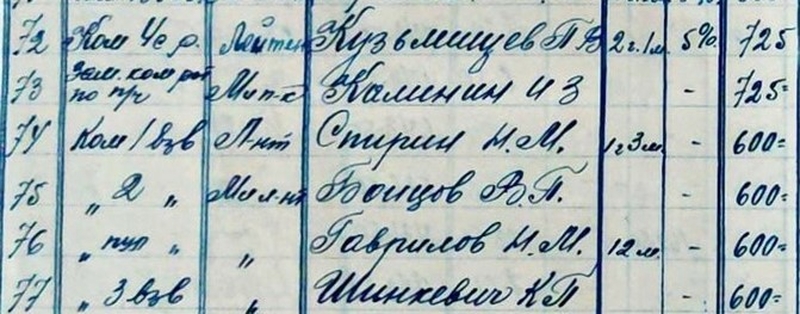 72 Ком 4е р. Лейтен Кузьмищев П В 2 г. 1 м. 5% 725
73 Зам. ком рот по пр Мл п-к Калинин И З - 725=
74 Ком 1 взв Л-нт Спирин Н. М. 1 г 3 м. - 600=
75 " 2 " Мл л-нт Боицов В. П. - 600=
76 " пул " " Гаврилов Н. М. 12 м. - 600=
77 " 3 взв " Шинкевич К П - 600=